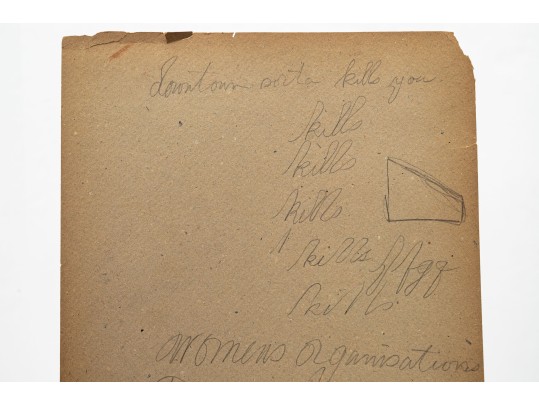 downtown sorta kills you.
kills
kills
kills
kills
kills
womens organisations